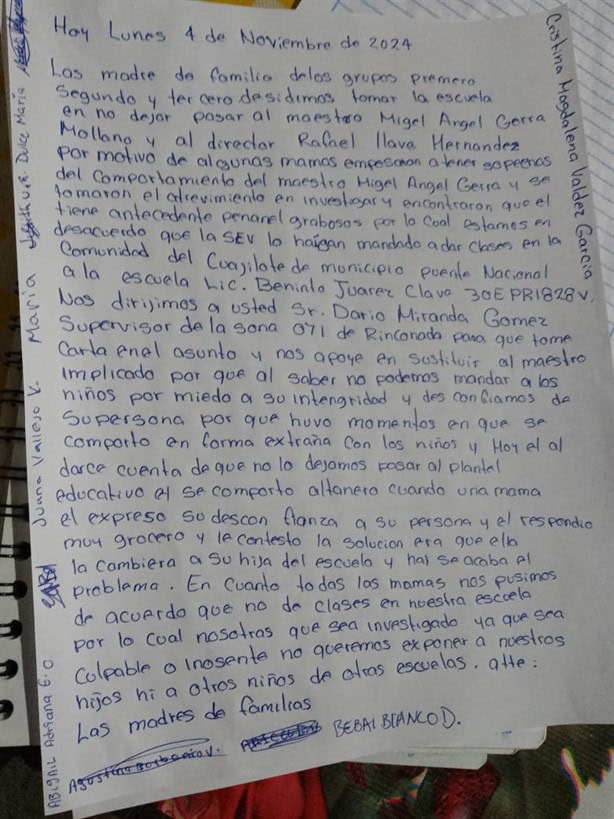 Hoy Lunes 4 de Noviembre de 2024
Las madre de familia delos grupos premero
Segundo y tercero desidimos tomar la escuela
en no dejar pasar al maestro Migel Angel Gerra
Mollano y al director Rafael llava Hernandez
por motivo de algunas mamas empesaron a tener sopeenas
del comportamiento del maestro Migel Angel Gerra y se
tomaron el atrevimiento en investigar y encontraron que el
tiene antecedente penarel grabosos por lo cual estamos en
desacuerdo que la SEV lo haigan mandado a dar clases en la
Comunidad del Cuajilote de municipio puente Nacional
a la escuela Lic. Beninto Juarez Clava 30EPR1828V.
Nos dirijimos a usted Sr. Dario Miranda Gomez
Supervisor de la sona 071 de Rinconada para que tome
Carta enel asunto y nos apoye en sustituir al maestro
implicado por que al saber no podemos mandar a los
niños por miedo a su intengridad y des confiamos de
Supersona por que huvo momentos en que se
comporto en forma extraña con los niños y Hoy el al
darce cuenta de que no lo dejamos pasar al plantel
educativo el se comporto altanero cuando una mama
el expreso su descon fianza a su persona y el respondio
muy grocero y le contesto la solucion era que ella
la cambiera a su hija del escuela y hai se acaba el
problema. En cuanto todas las mamas nos pusimos
de acuerdo que no de clases en nuestra escuela
por lo cual nosotras que sea investigado ya que sea
culpable o inosente no queremos exponer a nuestros
hijos ni a otros niños de otras escuelas. atte:
Las madres de familias
BEBAI BLANCO D.
ABIGAIL Adriana G.C
Juana Vallejo V.
Maria
Dulce Maria
Cristina Magdalena Valdez Garcia